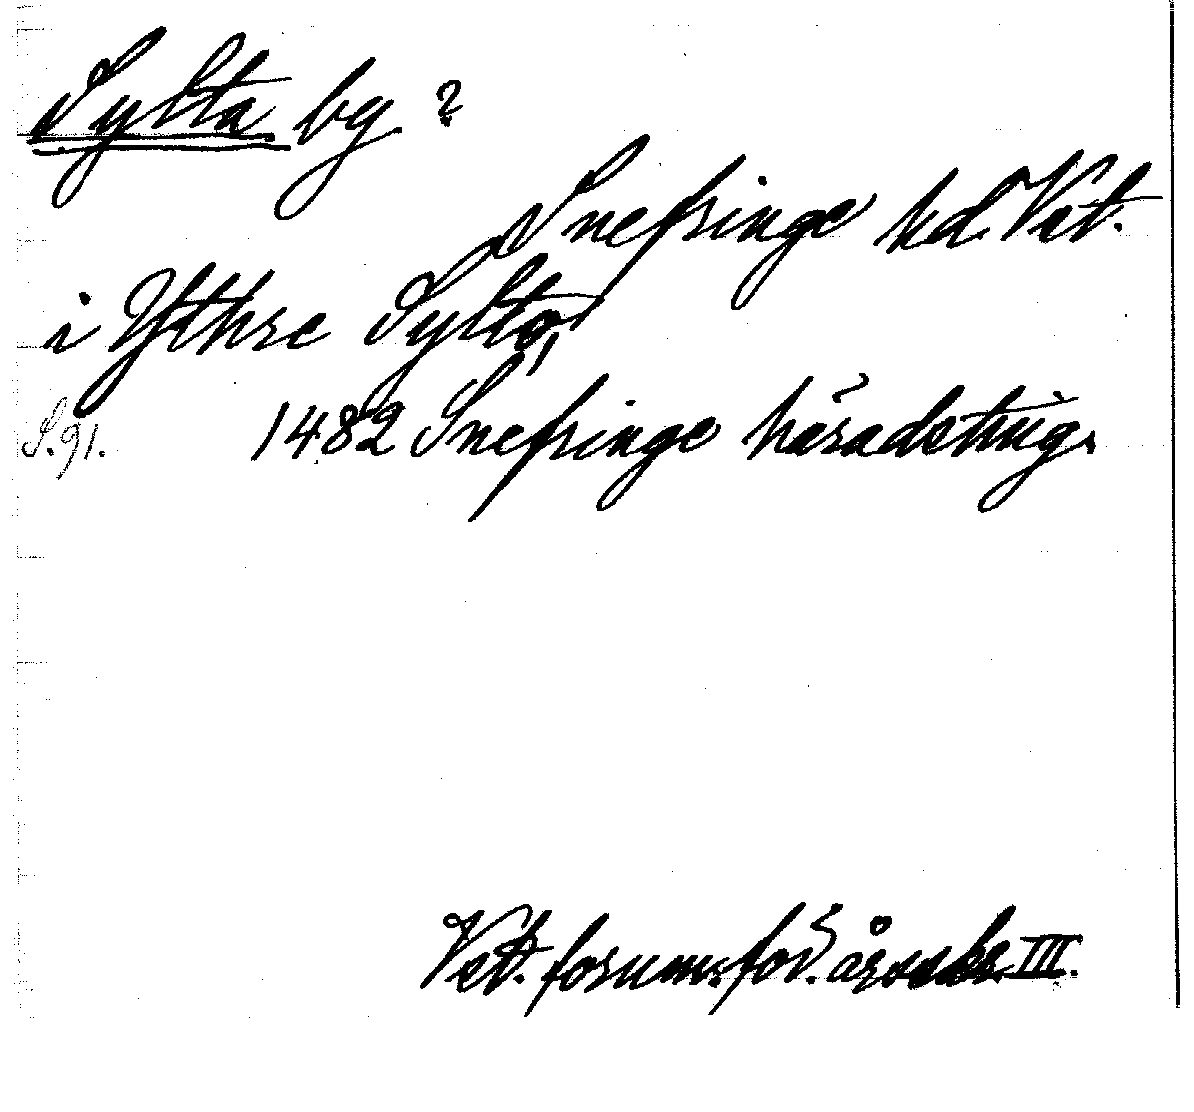 Sylta by ?
Snefringe hd. Vst.
i Ythre Sylto,
S. 91. 1482 Snefringe häradsting.
Vst. fornm. för. årsskr. III.